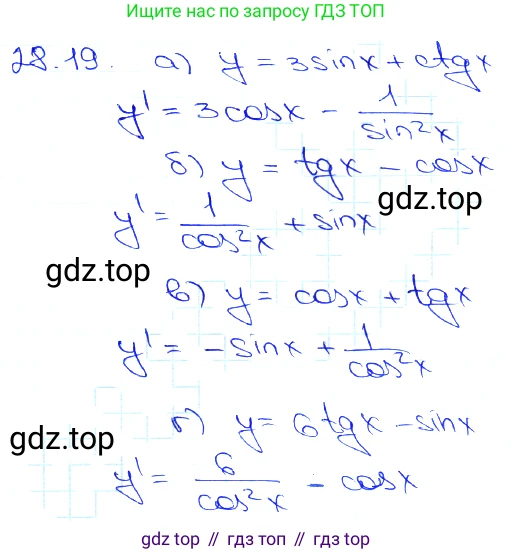 Ищите нас по запросу ГДЗ ТОП
28.19. а) y = 3sinx + ctgx
y' = 3cosx - 1/sin²x
б) y = tgx - cosx
y' = 1/cos²x + sinx
gdz.top
gdz.top
в) y = cosx + tgx
y' = -sinx + 1/cos²x
г) y = 6tgx - sinx
gdz.top
y' = 6/cos²x - cosx
gdz top // гдз топ // gdz.top